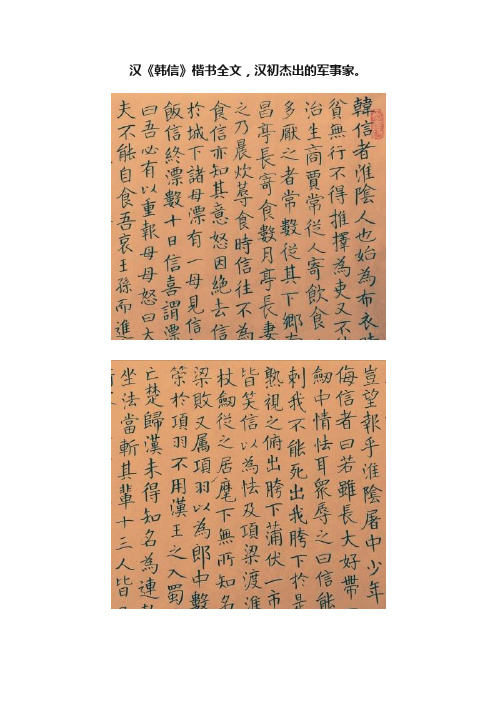 汉《韩信》楷书全文，汉初杰出的军事家。
韓信者淮陰人也始為布衣
貧無行不得推擇為吏又不
治生商賈常從人寄飲食
多厭之者常數從其下鄉
昌亭長寄食數月亭長妻
之乃晨炊蓐食時信往不為
食信亦知其意怒因絶去信
於城下諸母漂有一母見信
飯信終漂數十日信喜謂漂
曰吾必有以重報母母怒曰大
夫不能自食吾哀王孫而進
豈望報乎淮陰屠中少年
侮信者曰若雖長大好帶
劒中情怯耳眾辱之曰信能
刺我不能死出我胯下於是
熟視之俯出胯下蒲伏一市
皆笑信以為怯及項梁渡淮
杖劒從之居麾下無所知名
梁敗又属項羽以為郎中數
策於項羽不用漢王之入蜀
亡楚歸漢未得知名為連
坐法當斬其輩十三人皆